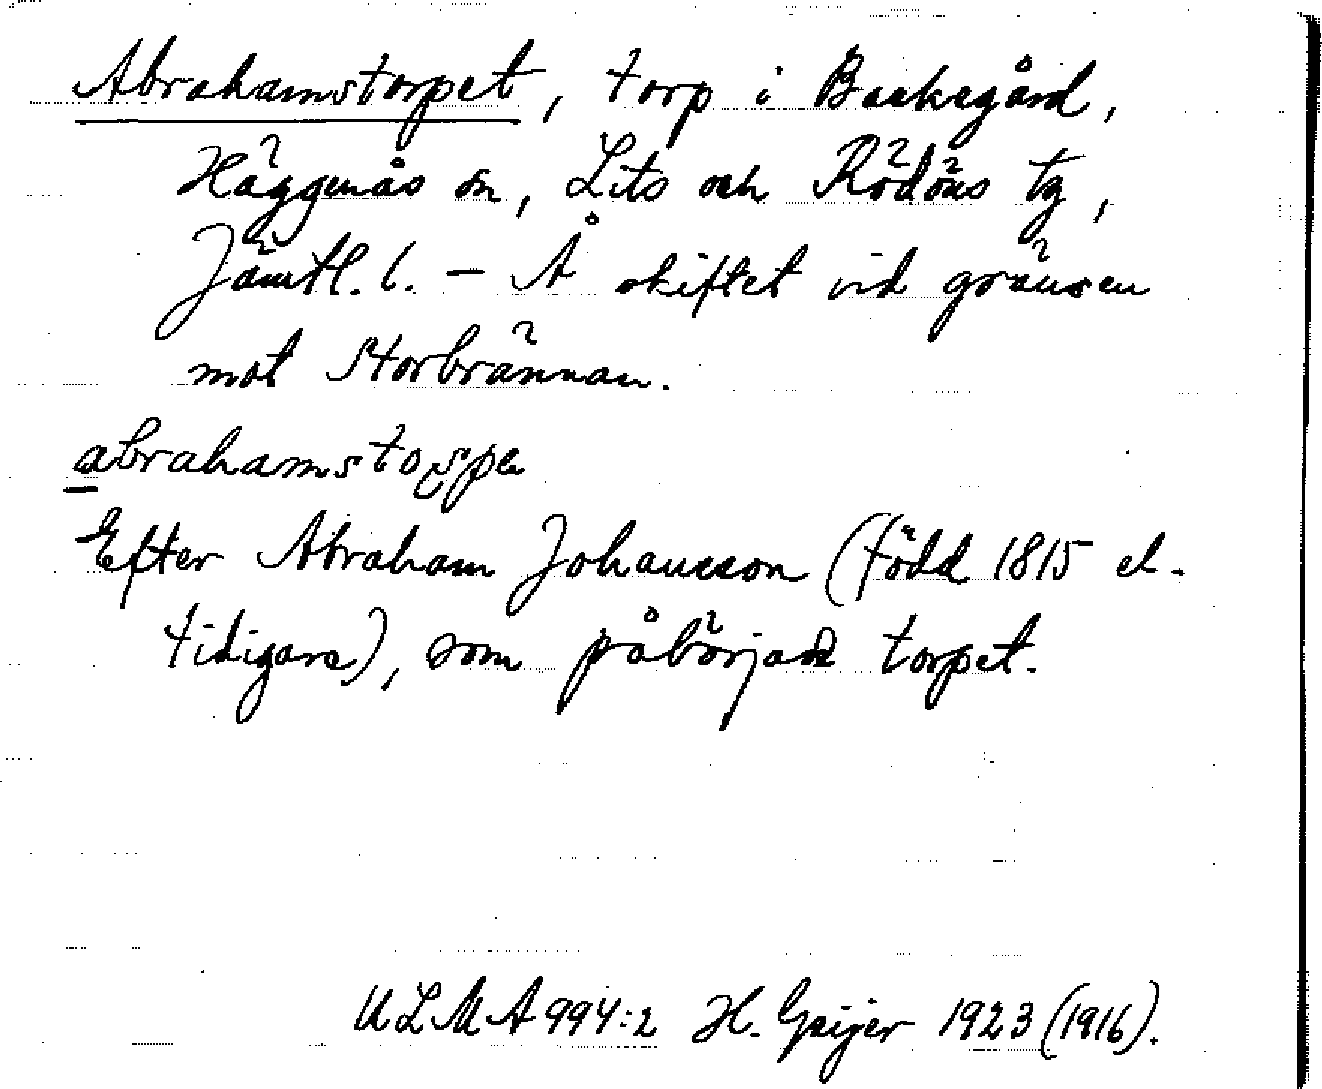 Abrahamstorpet, torp i Backegård,
Häggenås sn, Lits och Rödöns tg,
Jämtl. l. – Å skiftet vid gränsen
mot Storbrännan.
abrahamstoṣpe
Efter Abraham Johansson (född 1815 el.
tidigare), som påbörjade torpet.
ULMA 994:2 H. Geijer 1923 (1916).